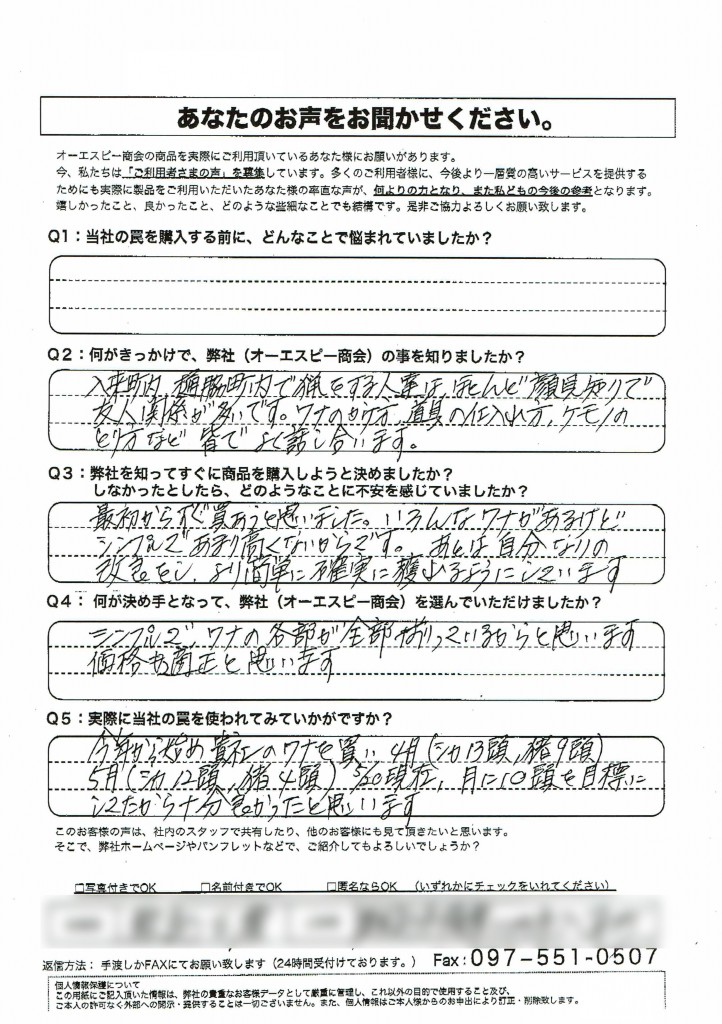 あなたのお声をお聞かせください。
オーエスピー商会の商品を実際にご利用頂いているあなた様にお願いがあります。
今、私たちは「ご利用者さまの声」を募集しています。多くのご利用者様に、今後より一層質の高いサービスを提供する
ためにも実際に製品をご利用いただいたあなた様の率直な声が、何よりの力となり、また私どもの今後の参考となります。
嬉しかったこと、良かったこと、どのような些細なことでも結構です。是非ご協力よろしくお願い致します。
Q1：当社の罠を購入する前に、どんなことで悩まれていましたか？
Q2：何がきっかけで、弊社（オーエスピー商会）の事を知りましたか？
入来町内、樋脇町内で猟をする人達は、ほとんど顔見知りで
友人関係が多いです。ワナのかけ方、道具の仕入れ方、ケモノの
とり方など皆でよく話し合います。
Q3：弊社を知ってすぐに商品を購入しようと決めましたか？
しなかったとしたら、どのようなことに不安を感じていましたか？
最初からすぐ買おうと思いました。いろんなワナがあるけど
シンプルであまり高くないからです。あとは自分なりの
改良をし、より簡単に確実に獲れるようにしています
Q4： 何が決め手となって、弊社（オーエスピー商会）を選んでいただけましたか？
シンプルで、ワナの各部が全部揃っているからと思います
価格も適正と思います
Q5：実際に当社の罠を使われてみていかがですか？
今年から始め貴社のワナを買い 4月（シカ13頭，猪9頭）
5月（シカ12頭，猪4頭）5/20現在，月に10頭を目標に
してたから十分良かったと思います
このお客様の声は、社内のスタッフで共有したり、他のお客様にも見て頂きたいと思います。
そこで、弊社ホームページやパンフレットなどで、ご紹介してもよろしいでしょうか？
□写真付きでOK □名前付きでOK □匿名ならOK （いずれかにチェックをいれてください）
返信方法： 手渡しかFAXにてお願い致します（24時間受付けております。） Fax：097-551-0507
個人情報保護について
この用紙にご記入頂いた情報は、弊社の貴重なお客様データとして厳重に管理し、これ以外の目的で使用すること及び、
ご本人の許可なく外部への開示・提供することは一切ございません。また、個人情報はご本人様からのお申出により訂正・削除致します。